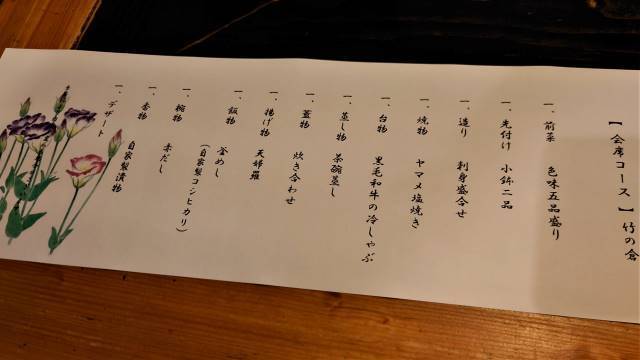 【会席コース】竹の倉
一、前菜 色味五品盛り
一、先付け 小鉢二品
一、造り 刺身盛合せ
一、焼物 ヤマメ塩焼き
一、台物 黒毛和牛の冷しゃぶ
一、蒸し物 茶碗蒸し
一、蓋物 炊き合わせ
一、揚げ物 天婦羅
一、飯物 釜めし
(自家製コシヒカリ)
一、椀物 赤だし
一、香物 自家製漬物
一、デザート